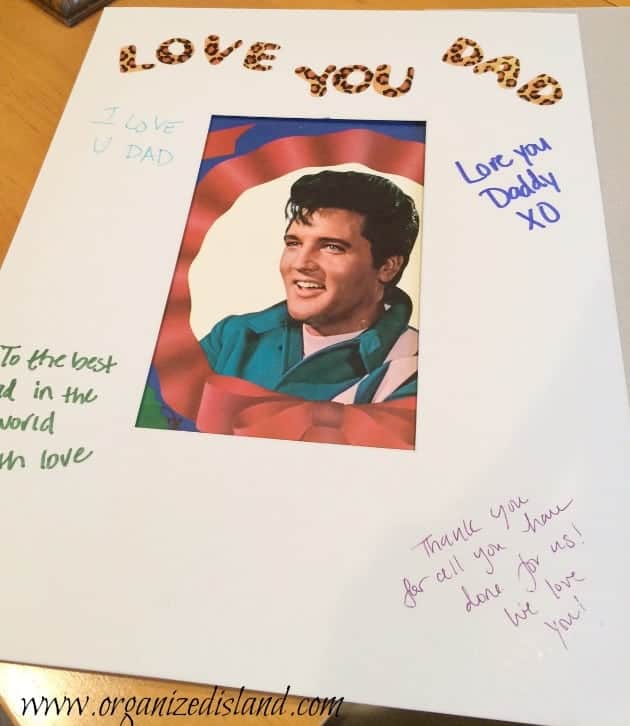 LOVE YOU DAD
I LOVE
U DAD
Love you
Daddy
XO
To the best
in the
world
love
Thank you
for all you have
done for us!
We love
you!
www.organizedisland.com